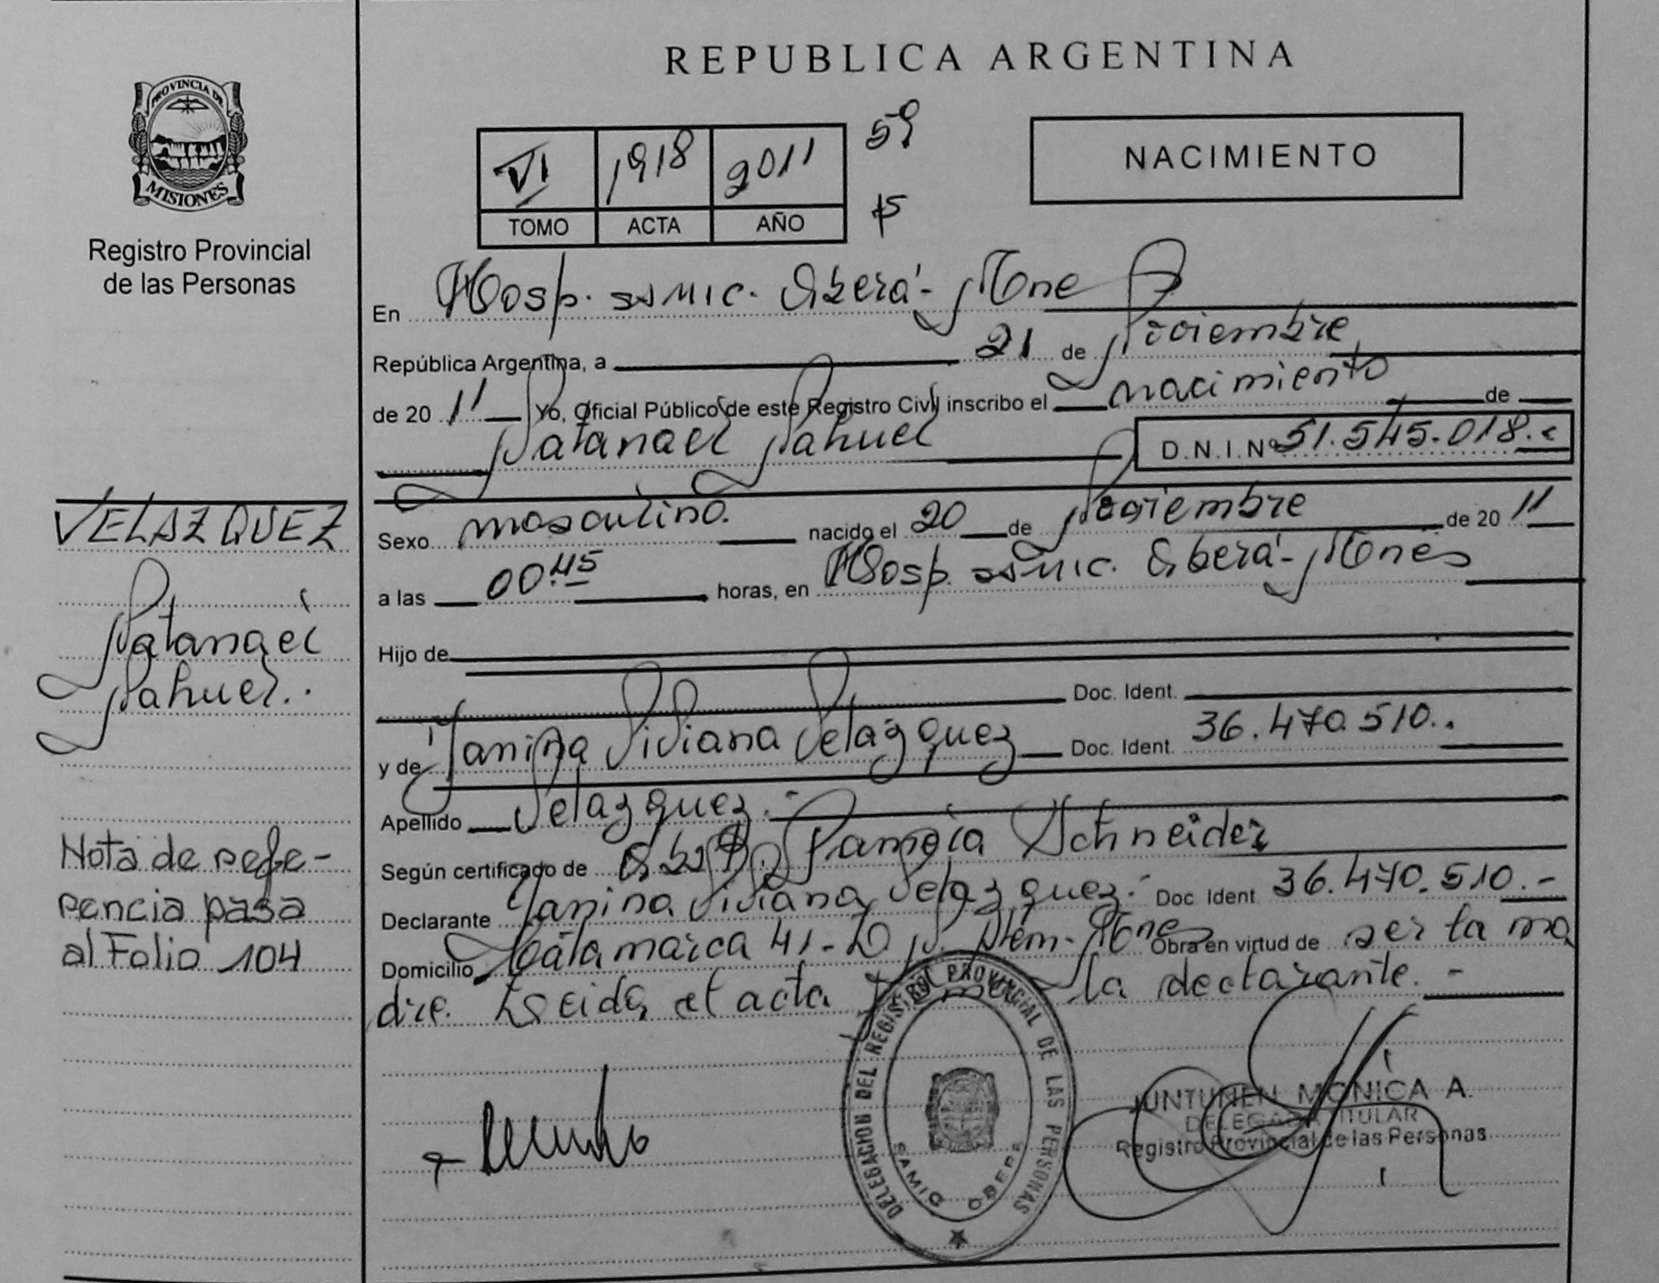 REPUBLICA ARGENTINA
PROVINCIA DE
MISIONES
Registro Provincial
de las Personas
VI 1918 2011 59
TOMO ACTA AÑO 15
NACIMIENTO
En Hosp. SAMIC. Oberá - Mnes
República Argentina, a 21 de Noviembre
de 2011 Yo, Oficial Público de este Registro Civil inscribo el nacimiento de
Natanael Nahuel D.N.I. Nº 51.545.018.-
VELAZQUEZ
Natanael
Nahuel.
Sexo masculino. nacido el 20 de Noviembre de 2011
a las 00:45 horas, en Hosp. SAMIC. Oberá - Mones
Hijo de
Doc. Ident.
y de Yanina Viviana Velazquez Doc. Ident. 36.470.510..
Apellido Velazquez.-
Según certificado de Obst. Pamela Schneider
Declarante Yanina Viviana Velazquez.- Doc. Ident 36.470.510.-
Domicilio Catamarca 41- Mnes Obra en virtud de ser la ma
dre. Leida el acta la declarante.-
Nota de refe-
rencia pasa
al Folio 104
DELEGACION DEL REGISTRO PROVINCIAL DE LAS PERSONAS
SAMIC OBERA
JUNTUNEN MONICA A.
DELEGADA TITULAR
Registro Provincial de las Personas